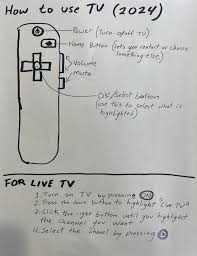 How to use TV (2024)
Power (Turn on/off TV)
Home Button (lets you restart or choose
something else)
Volume
mute
OK/Select button
(use this to select what is
highlighted)
FOR LIVE TV
1. Turn on TV by pressing ON
2. Press the down button to highlight "Live TV"
3. Click the right button until you highlight
the channel you want
4. Select the chanel by pressing